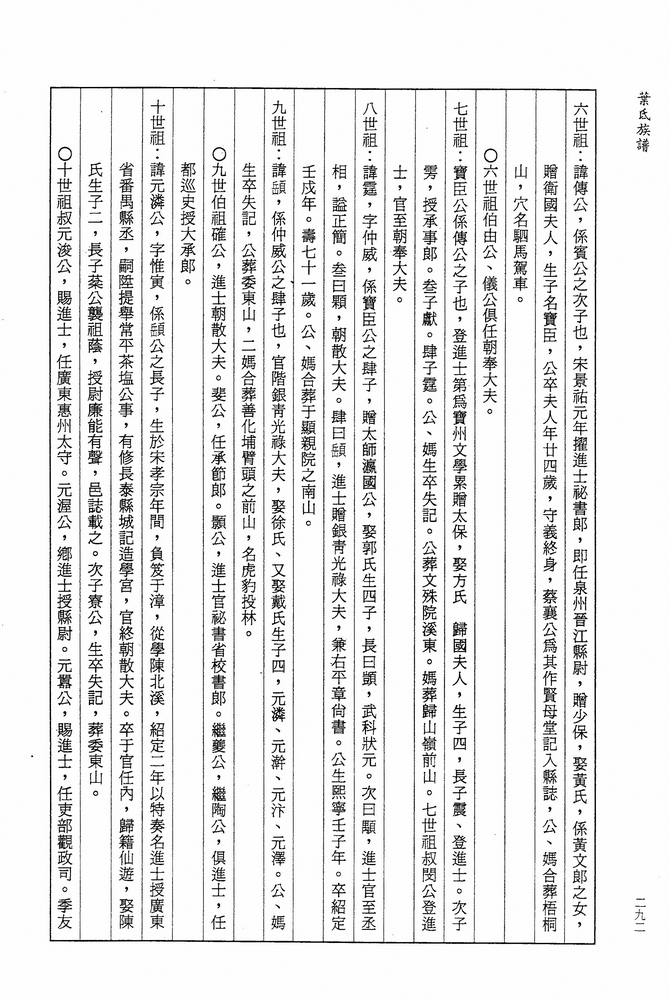 葉氏族譜
二九二
六世祖：諱傳公，係賓公之次子也，宋景祐元年擢進士祕書郎，即任泉州晉江縣尉，贈少保，娶黃氏，係黃文郎之女，
贈衛國夫人，生子名寶臣，公卒夫人年廿四歲，守義終身，蔡襄公爲其作賢母堂記入縣誌，公、媽合葬梧桐
山，穴名駟馬駕車。
〇六世祖伯由公、儀公俱任朝奉大夫。
七世祖：寶臣公係傳公之子也，登進士第爲寶州文學累贈太保，娶方氏 歸國夫人，生子四，長子震、登進士。次子
雱，授承事郎。叁子獻。肆子霆。公、媽生卒失記。公葬文殊院溪東。媽葬歸山嶺前山。七世祖叔閔公登進
士，官至朝奉大夫。
八世祖：諱霆，字仲威，係寶臣公之肆子，贈太師瀛國公，娶郭氏生四子，長曰顗，武科狀元。次曰顒，進士官至丞
相，謚正簡。叁曰顆，朝散大夫。肆曰，進士贈銀青光祿大夫，兼右平章尙書。公生熙寧壬子年。卒紹定
壬戌年。壽七十一歲。公、媽合葬于顯親院之南山。
九世祖：諱，係仲威公之肆子也，官階銀青光祿大夫，娶徐氏、又娶戴氏生子四，元潾、元澣、元汴、元澤。公、媽
生卒失記，公葬委東山，二媽合葬善化埔臂頭之前山，名虎豹投林。
〇九世伯祖確公，進士朝散大夫。斐公，任承節郎。顥公，進士官祕書省校書郎。繼夔公，繼陶公，俱進士，任
都巡史授大承郎。
十世祖：諱元潾公，字惟寅，係公之長子，生於宋孝宗年間，負笈于漳，從學陳北溪，紹定二年以特奏名進士授廣東
省番禺縣丞，嗣陞提舉常平茶塩公事，有修長泰縣城記造學宮，官終朝散大夫。卒于官任內，歸籍仙遊，娶陳
氏生子二，長子棻公襲祖蔭，授尉廉能有聲，邑誌載之。次子寮公，生卒失記，葬委東山。
〇十世祖叔元浚公，賜進士，任廣東惠州太守。元渥公，鄉進士授縣尉。元囂公，賜進士，任吏部觀政司。季友